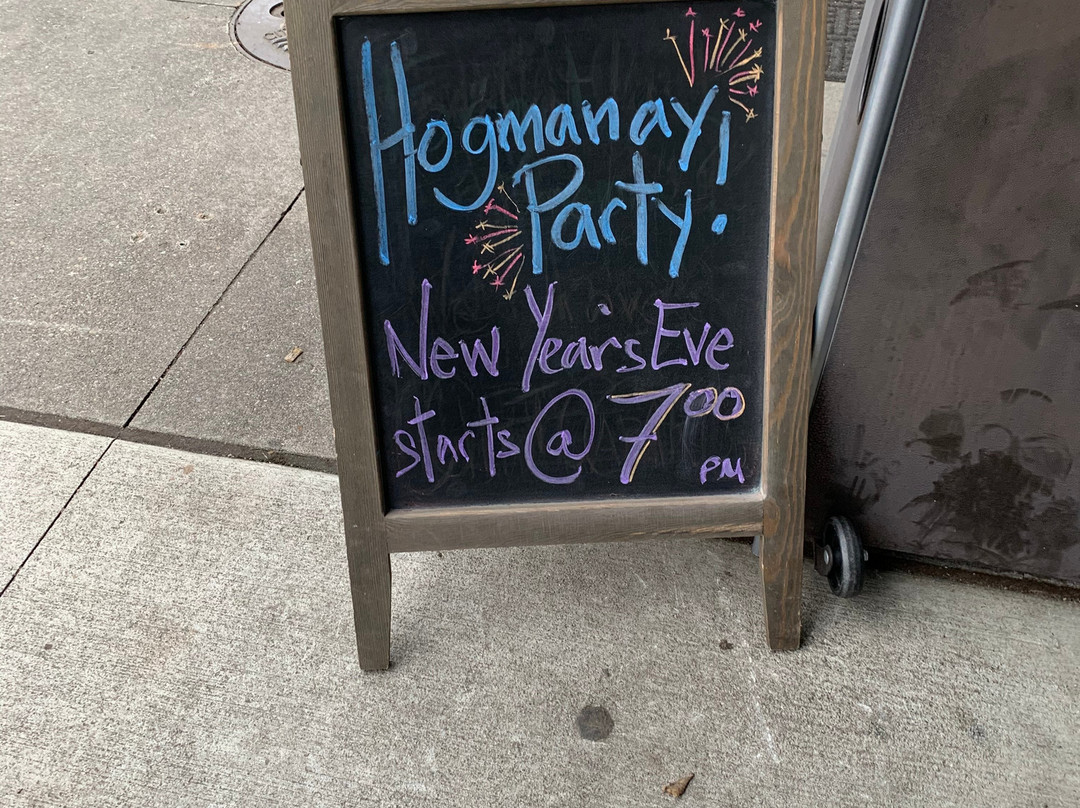 Hogmanay!
Party.
New Year's Eve
starts @ 7:00
PM